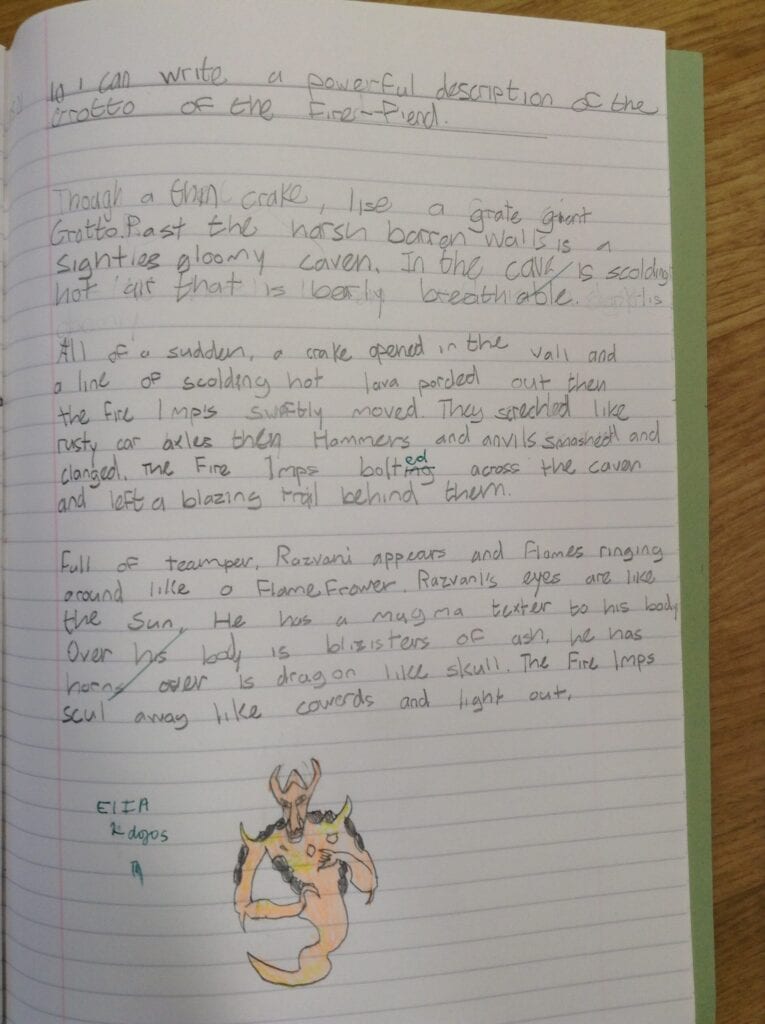 I can write a powerful description of the
Grotto of the Fire-Fiend.
Though a thin crake, lise a grate giant
Grotto. Past the harsh barren walls is a
sighties gloomy caven. In the cave is scolding
hot air that is berly breathable.
All of a sudden, a crake opened in the vall and
a line of scolding hot lava porded out then
the fire Imps swiftly moved. They screched like
rusty car axles then Hammers and anvils smashed and
clanged. The Fire Imps bolted across the caven
and left a blazing trail behind them.
Full of teamper, Razvani appears and Flames ringing
around like a Flame Frower. Razvani's eyes are like
the Sun, He has a magma texter to his body
Over his body is blizisters of ash, he has
horns over is dragon like skull. The Fire Imps
scul away like cowerds and light out.